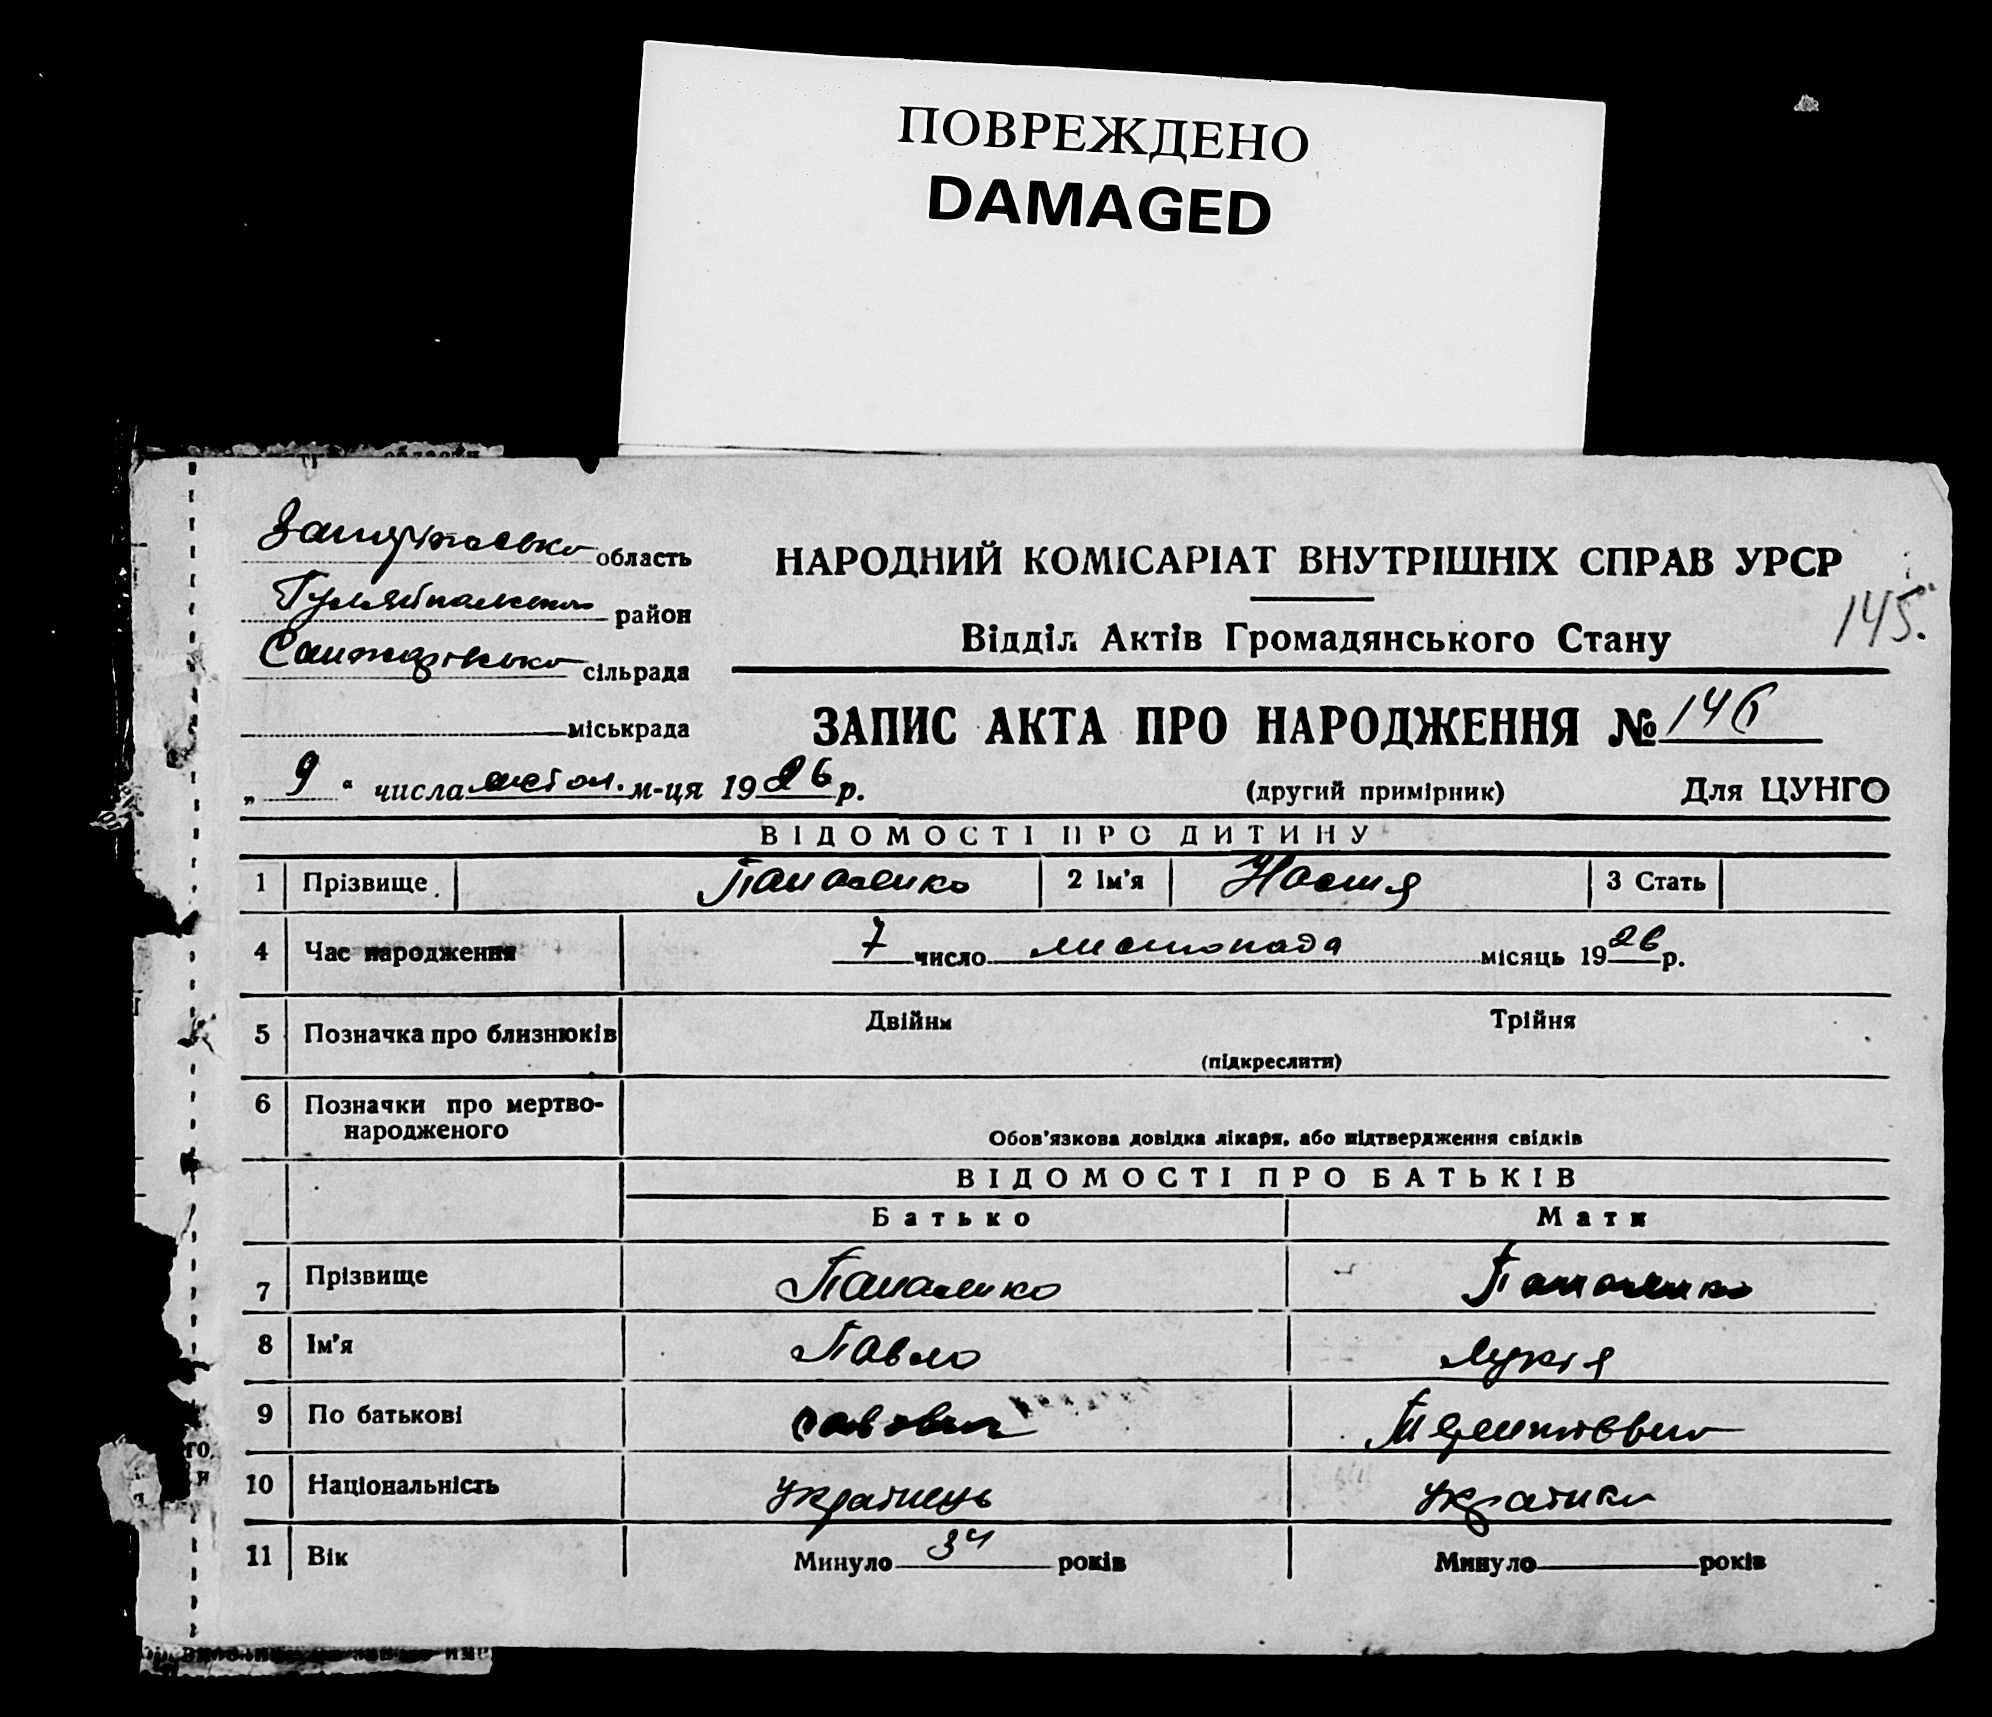 ПОВРЕЖДЕНО
DAMAGED
області
Запоріжсько область
Гуляйпольсько район
Санжарівсько сільрада
міськрада
НАРОДНИЙ КОМІСАРІАТ ВНУТРІШНІХ СПРАВ УРСР
145.
Відділ Актів Громадянського Стану
ЗАПИС АКТА ПРО НАРОДЖЕННЯ № 146
„ 9 " числа листоп. м-ця 1926 р.
(другий примірник) Для ЦУНГО
ВІДОМОСТІ ПРО ДИТИНУ
1 Прізвище Панасенко 2 Ім'я Настя 3 Стать
4 Час народження 7 число листопада місяць 1926 р.
5 Позначка про близнюків Двійня Трійня
(підкреслити)
6 Позначки про мертво-
народженого
Обов'язкова довідка лікаря, або підтвердження свідків
ВІДОМОСТІ ПРО БАТЬКІВ
Батько Мати
7 Прізвище Панасенко Панасенко
8 Ім'я Павло Лукія
9 По батькові савович
го
и
10 Національність українець українка
11 Вік Минуло 34 років Минуло років